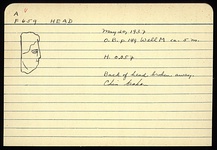 A
F 659 HEAD
May 20, 1937
O.D. p. 189 Well M ca. 5 m.
H. 0.057
Back of head broken away.
Chin